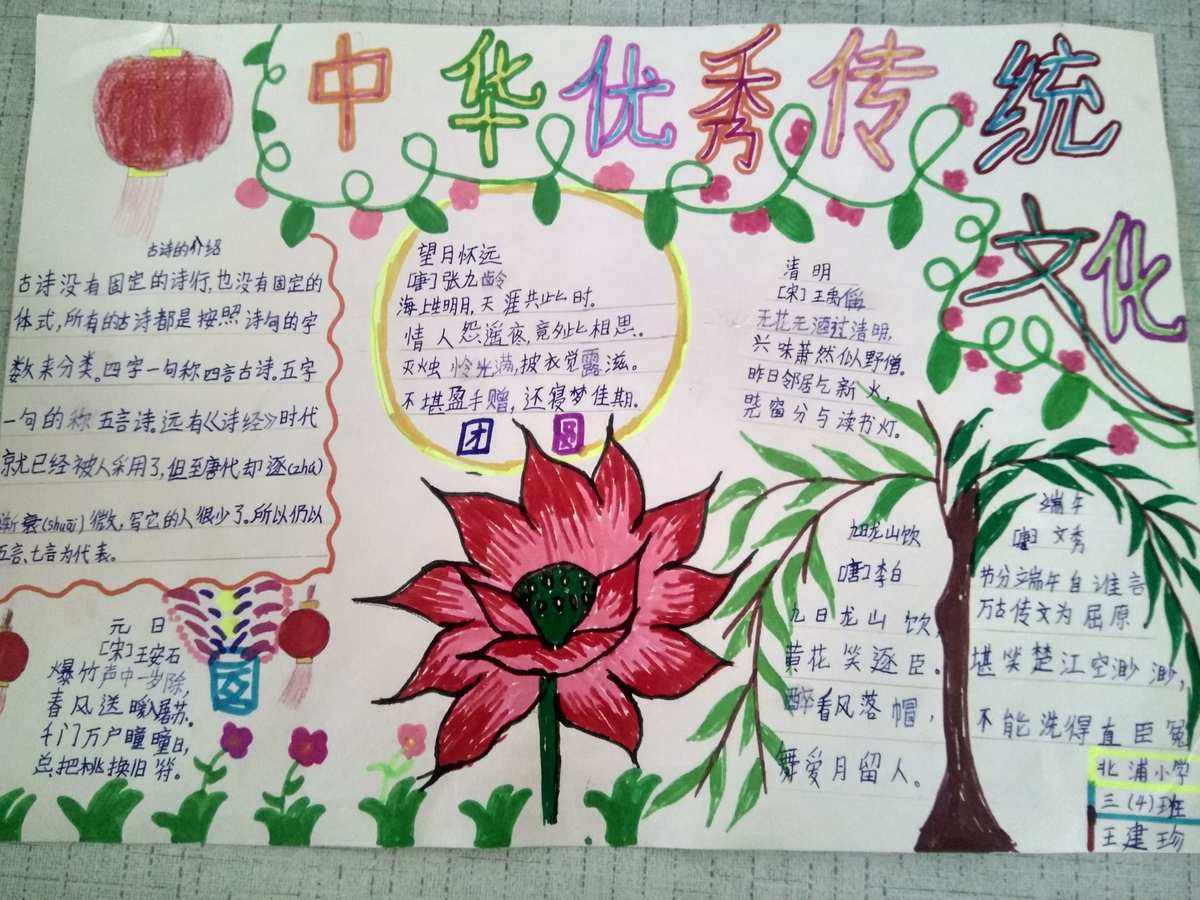 中华优秀传统
文化
古诗的介绍
古诗没有固定的诗行,也没有固定的
体式,所有的古诗都是按照诗句的字
数来分类。四字一句称四言古诗。五字
一句的称五言诗,远有《诗经》时代
就已经被人采用了,但至唐代却逐(zhú)
渐衰(shuāi)微,写它的人很少了。所以仍以
五言、七言为代表。
望月怀远
[唐]张九龄
海上生明月,天涯共此时。
情人怨遥夜,竟夕此相思。
灭烛怜光满,披衣觉露滋。
不堪盈手赠,还寝梦佳期。
团圆
清明
[宋]王禹偁
无花无酒过清明,
兴味萧然似野僧。
昨日邻居乞新火,
晓窗分与读书灯。
元日
[宋]王安石
爆竹声中一岁除,
春风送暖入屠苏。
千门万户曈曈日,
总把桃换旧符。
九日龙山饮
[唐]李白
九日龙山饮,
黄花笑逐臣。
醉看风落帽,
舞爱月留人。
端午
[唐]文秀
节分端午自谁言
万古传文为屈原
堪笑楚江空渺渺,
不能洗得直臣冤
北浦小学
三(4)班
王建珍